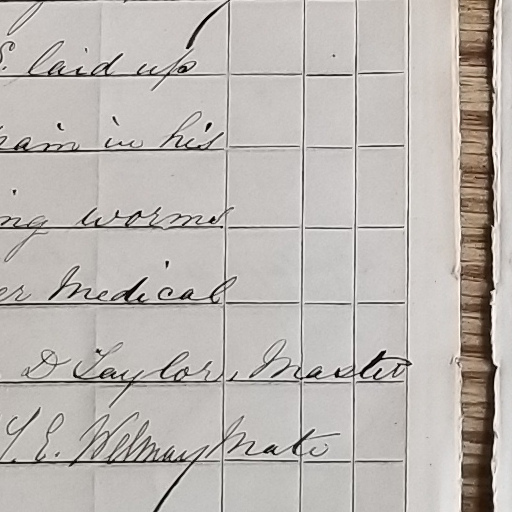 laid up
pain in his
ing worms
er Medical
D Taylor, Master
Y. E. Welmay Mate